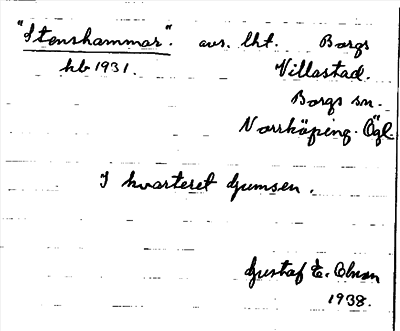 "Stenshammar". avs. lht. Borgs
hb 1931. Villastad.
Borgs sn.
Norrköping. Ögl.
I kvarteret Gumsen.
Gustaf E. Olsson
1938.